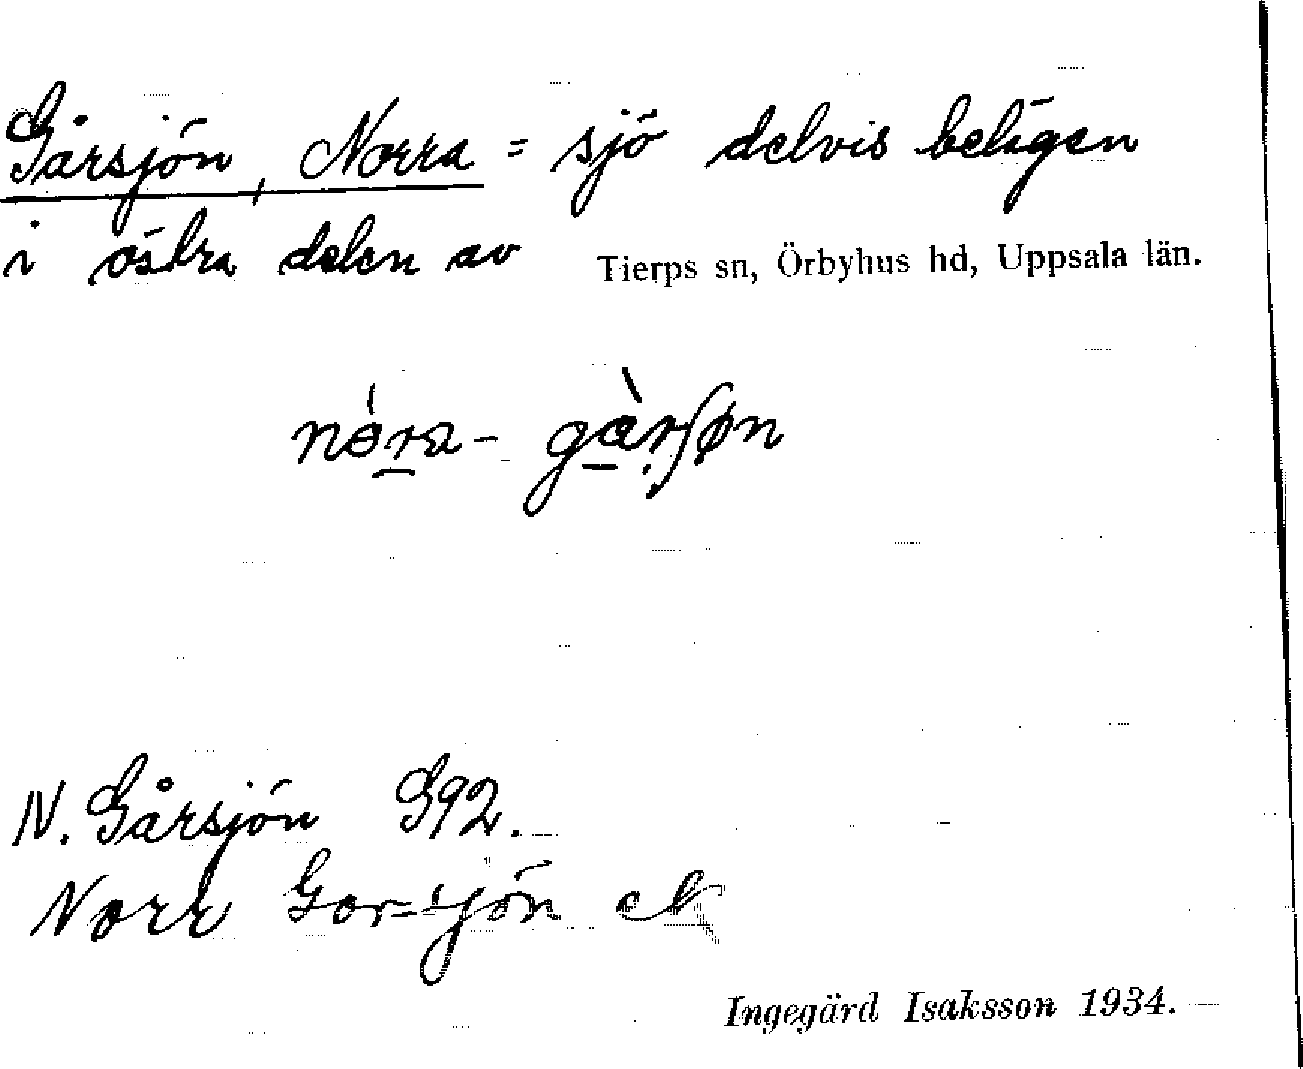 Gårsjön, Norra = sjö delvis belägen
i östra delen av Tierps sn, Örbyhus hd, Uppsala län.
N. Gårsjön G92.
Norr Gor-sjön ek
Ingegärd Isaksson 1934.